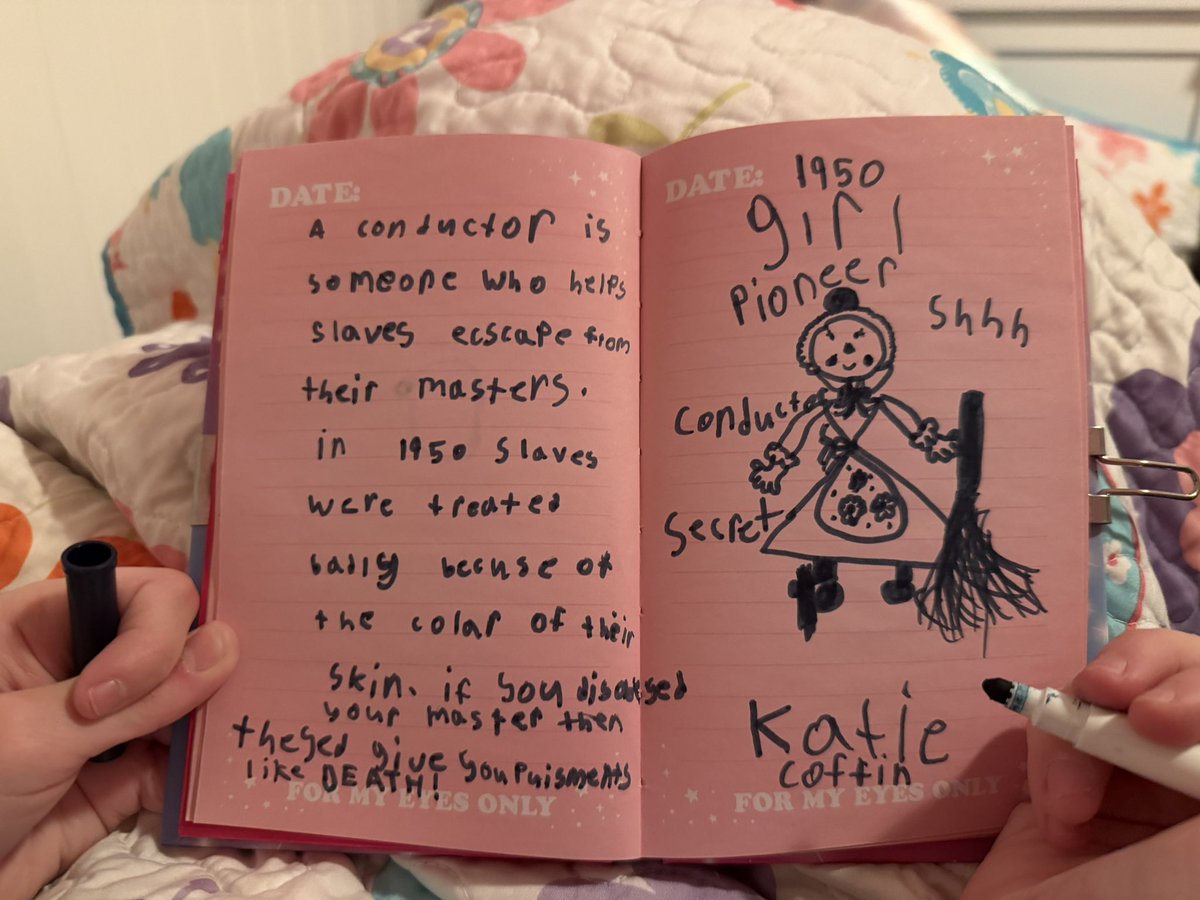 DATE:
A conductor is
someone who helps
slaves ecscape from
their masters.
in 1950 slaves
were treated
badly because of
the colar of their
skin. if you disobeyed
your master then
theyed give you puisments
like DEATH!
FOR MY EYES ONLY
DATE: 1950
girl
pioneer
shhh
conductor
secret
Katie
coffin
FOR MY EYES ONLY